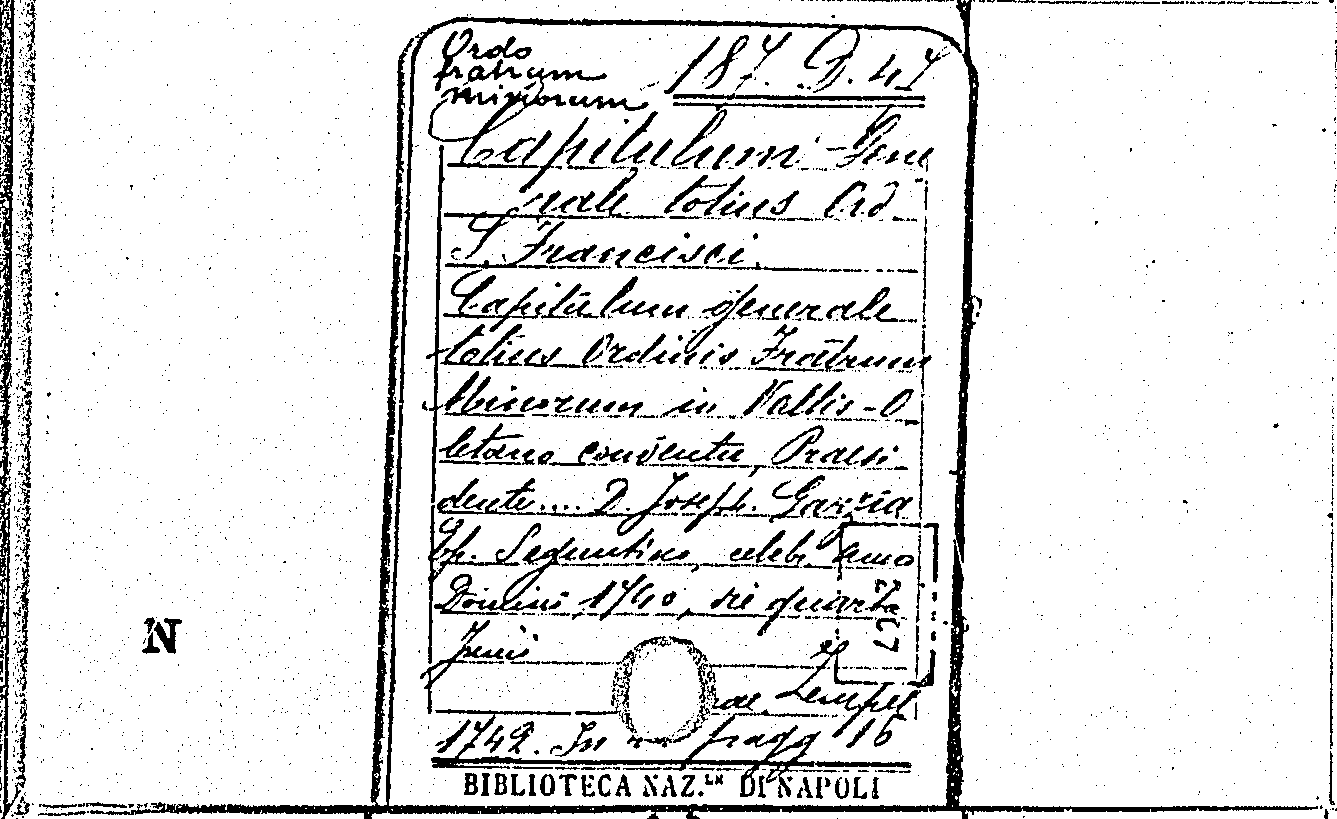 Ordo
fratrum
minorum
187. D. 47
Capitulum Gene
rale totius Ord.
S. Francisci.
Capitulum generale
totius Ordinis Fratrum
Minorum in Vallis-O
letano conventu, Praesi-
dente.... D. Joseph. Garzia
Ep. Seguntino, celebr. anno
Domini 1740, die quarta
Junii
1742. In fragg 16
BIBLIOTECA NAZ.LE DI NAPOLI
N